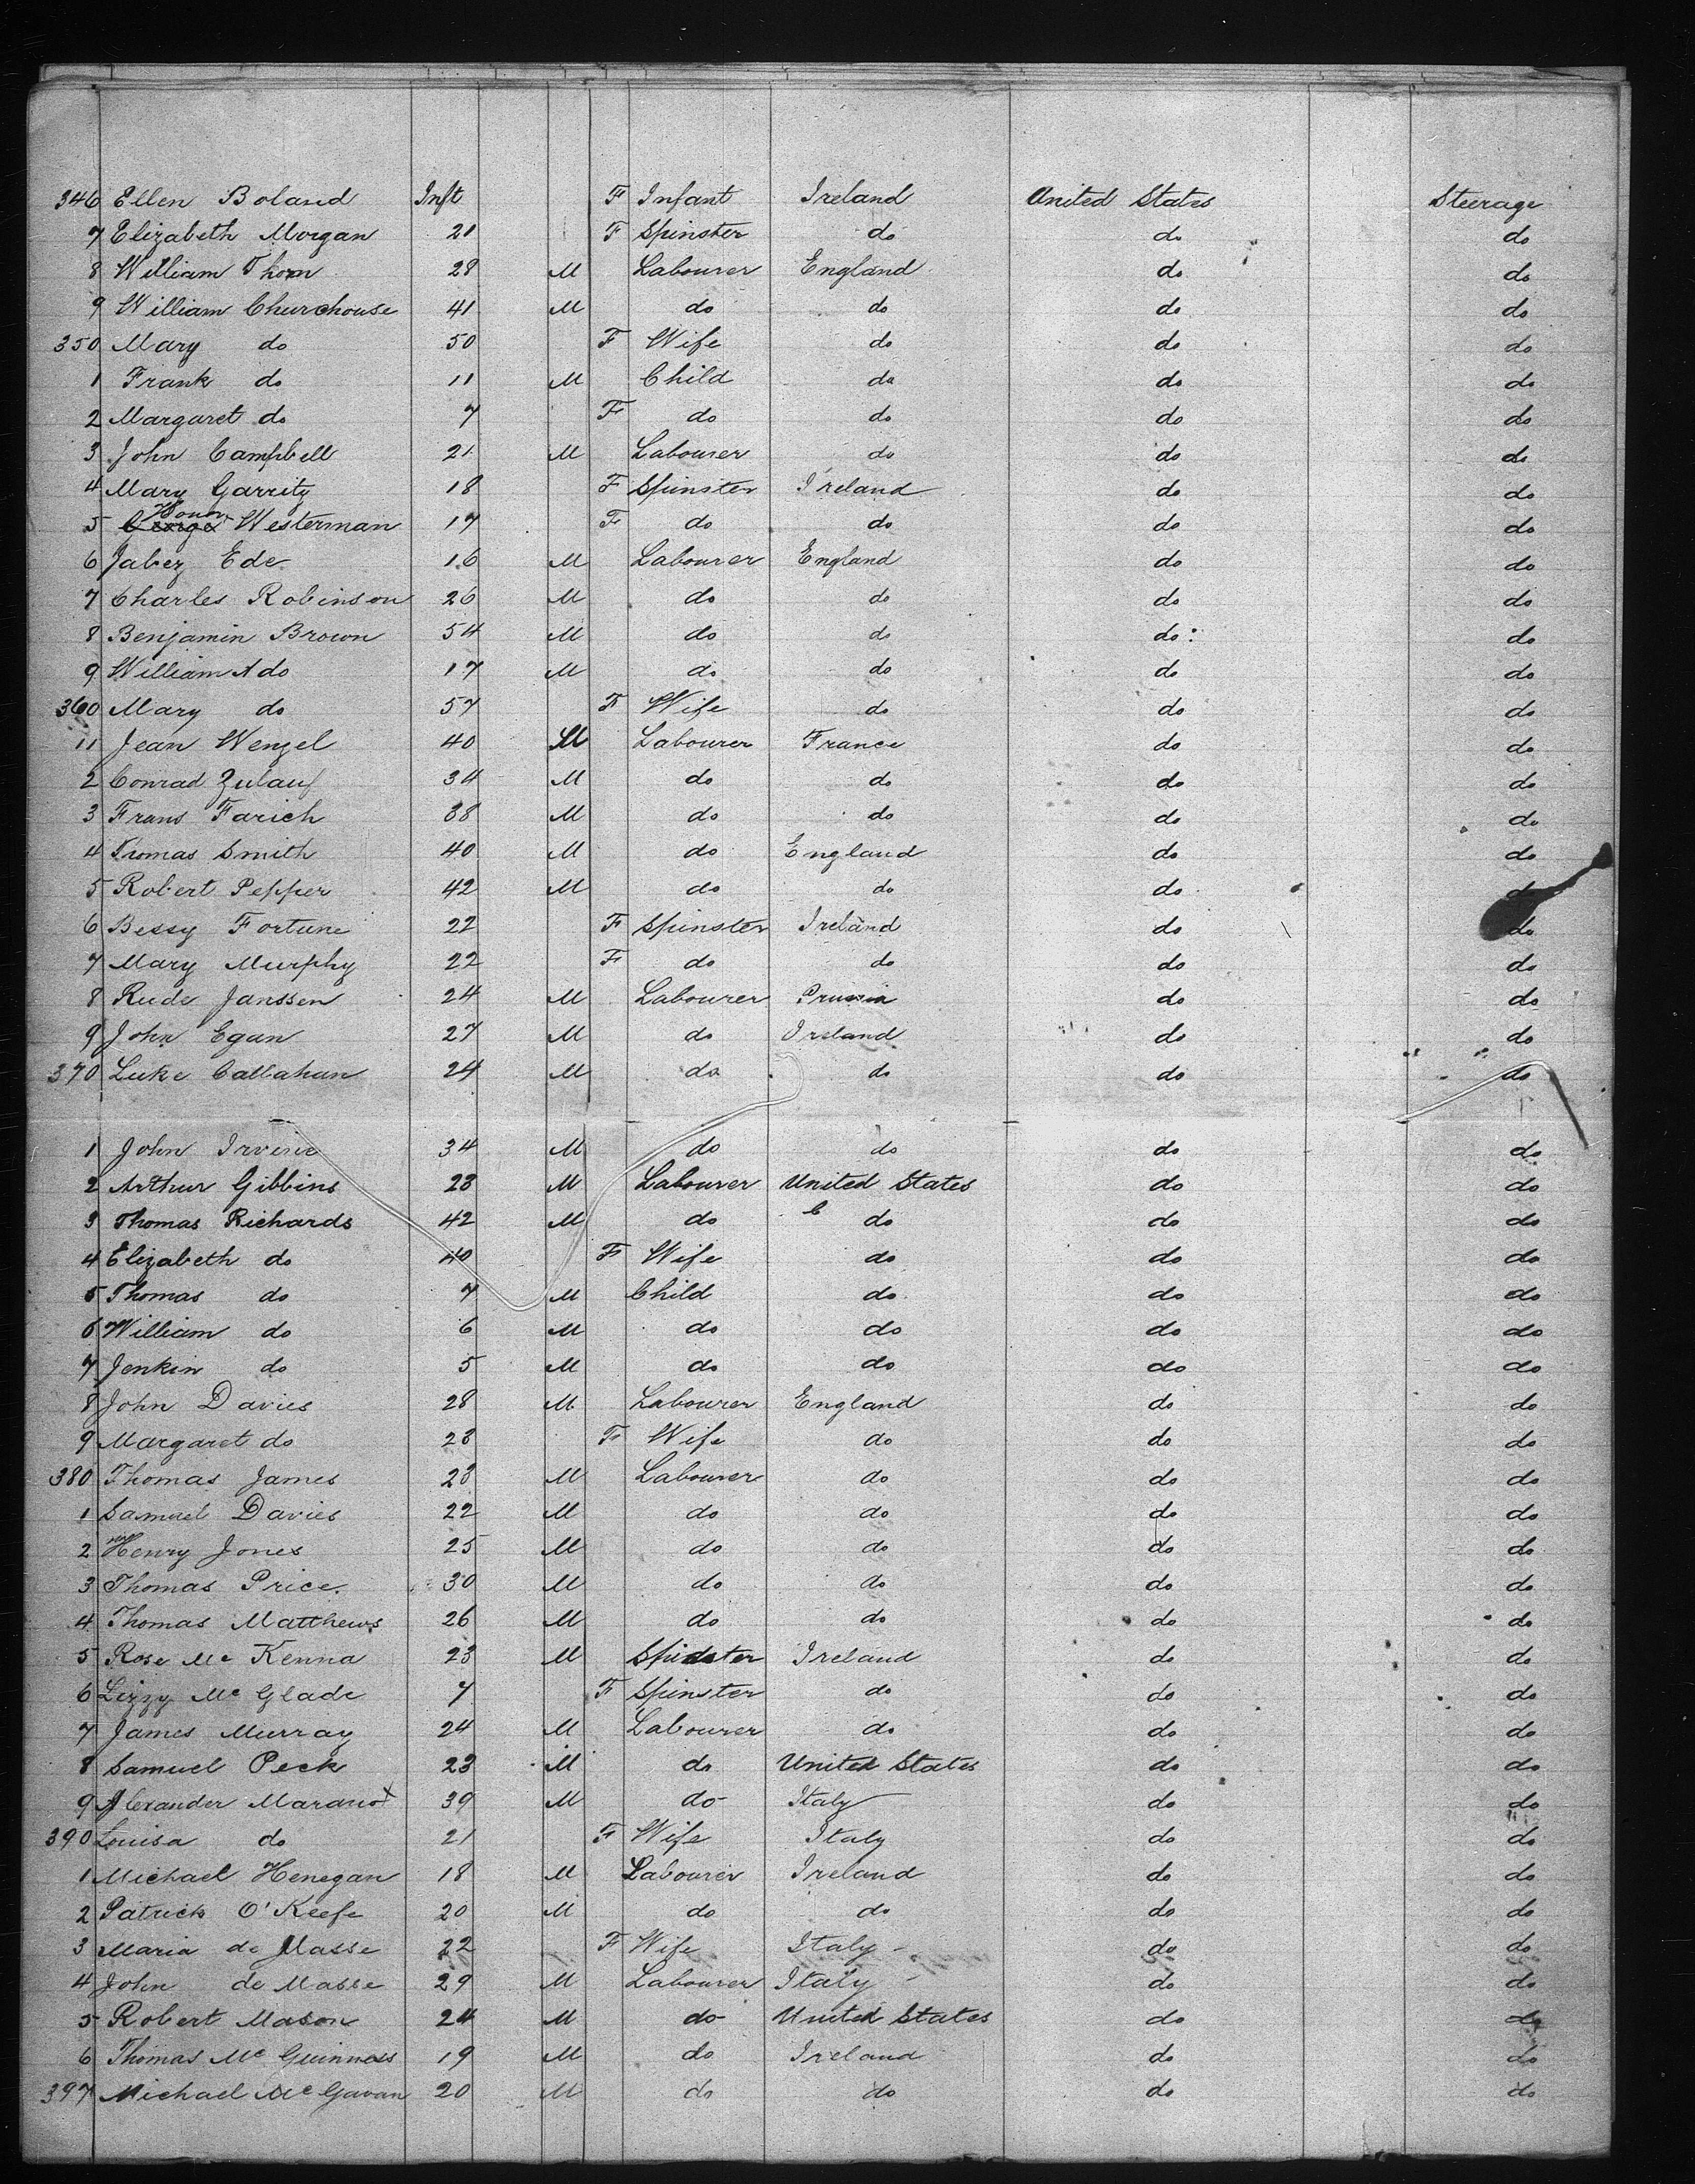 346 Ellen Boland Inft F Infant Ireland United States Steerage
7 Elizabeth Morgan 21 F Spinster do do do
8 William Thorn 28 M Labourer England do do
9 William Churchouse 41 M do do do do
350 Mary do 50 F Wife do do do
1 Frank do 11 M Child do do do
2 Margaret do 7 F do do do do
3 John Campbell 21 M Labourer do do do
4 Mary Garrity 18 F Spinster Ireland do do
5 George Honor Westerman 17 F do do do do
6 Jabez Ede 16 M Labourer England do do
7 Charles Robinson 26 M do do do do
8 Benjamin Brown 54 M do do do do
9 William A do 17 M do do do do
360 Mary do 57 F Wife do do do
11 Jean Wenzel 40 M Labourer France do do
2 Conrad Zulauf 34 M do do do do
3 Frans Farich 38 M do do do do
4 Tromas Smith 40 M do England do do
5 Robert Pepper 42 M do do do do
6 Bessy Fortune 22 F Spinster Ireland do do
7 Mary Murphy 22 F do do do do
8 Rude Janssen 24 M Labourer Prussia do do
9 John Egan 27 M do Ireland do do
370 Luke Callahan 24 M do do do do
1 John Irvine 34 M do do do do
2 Arthur Gibbins 23 M Labourer United States do do
3 Thomas Richards 42 M do do do do
4 Elizabeth do 40 F Wife do do do
5 Thomas do 7 M Child do do do
6 William do 6 M do do do do
7 Jenkin do 5 M do do do do
8 John Davies 28 M Labourer England do do
9 Margaret do 23 F Wife do do do
380 Thomas James 23 M Labourer do do do
1 Samuel Davies 22 M do do do do
2 Henry Jones 25 M do do do do
3 Thomas Price 30 M do do do do
4 Thomas Matthews 26 M do do do do
5 Rose Mc Kenna 23 M Spinster Ireland do do
6 Lizzy Mc Glade 7 F Spinster do do do
7 James Murray 24 M Labourer do do do
8 Samuel Peck 23 M do United States do do
9 Alexander Marano x 39 M do Italy do do
390 Louisa do 21 F Wife Italy do do
1 Michael Henegan 18 M Labourer Ireland do do
2 Patrick O'Keefe 20 M do do do do
3 Maria de Masse 22 F Wife Italy do do
4 John de Masse 29 M Labourer Italy do do
5 Robert Mason 24 M do United States do do
6 Thomas Mc Guinness 19 M do Ireland do do
397 Michael Mc Gavan 20 M do do do do